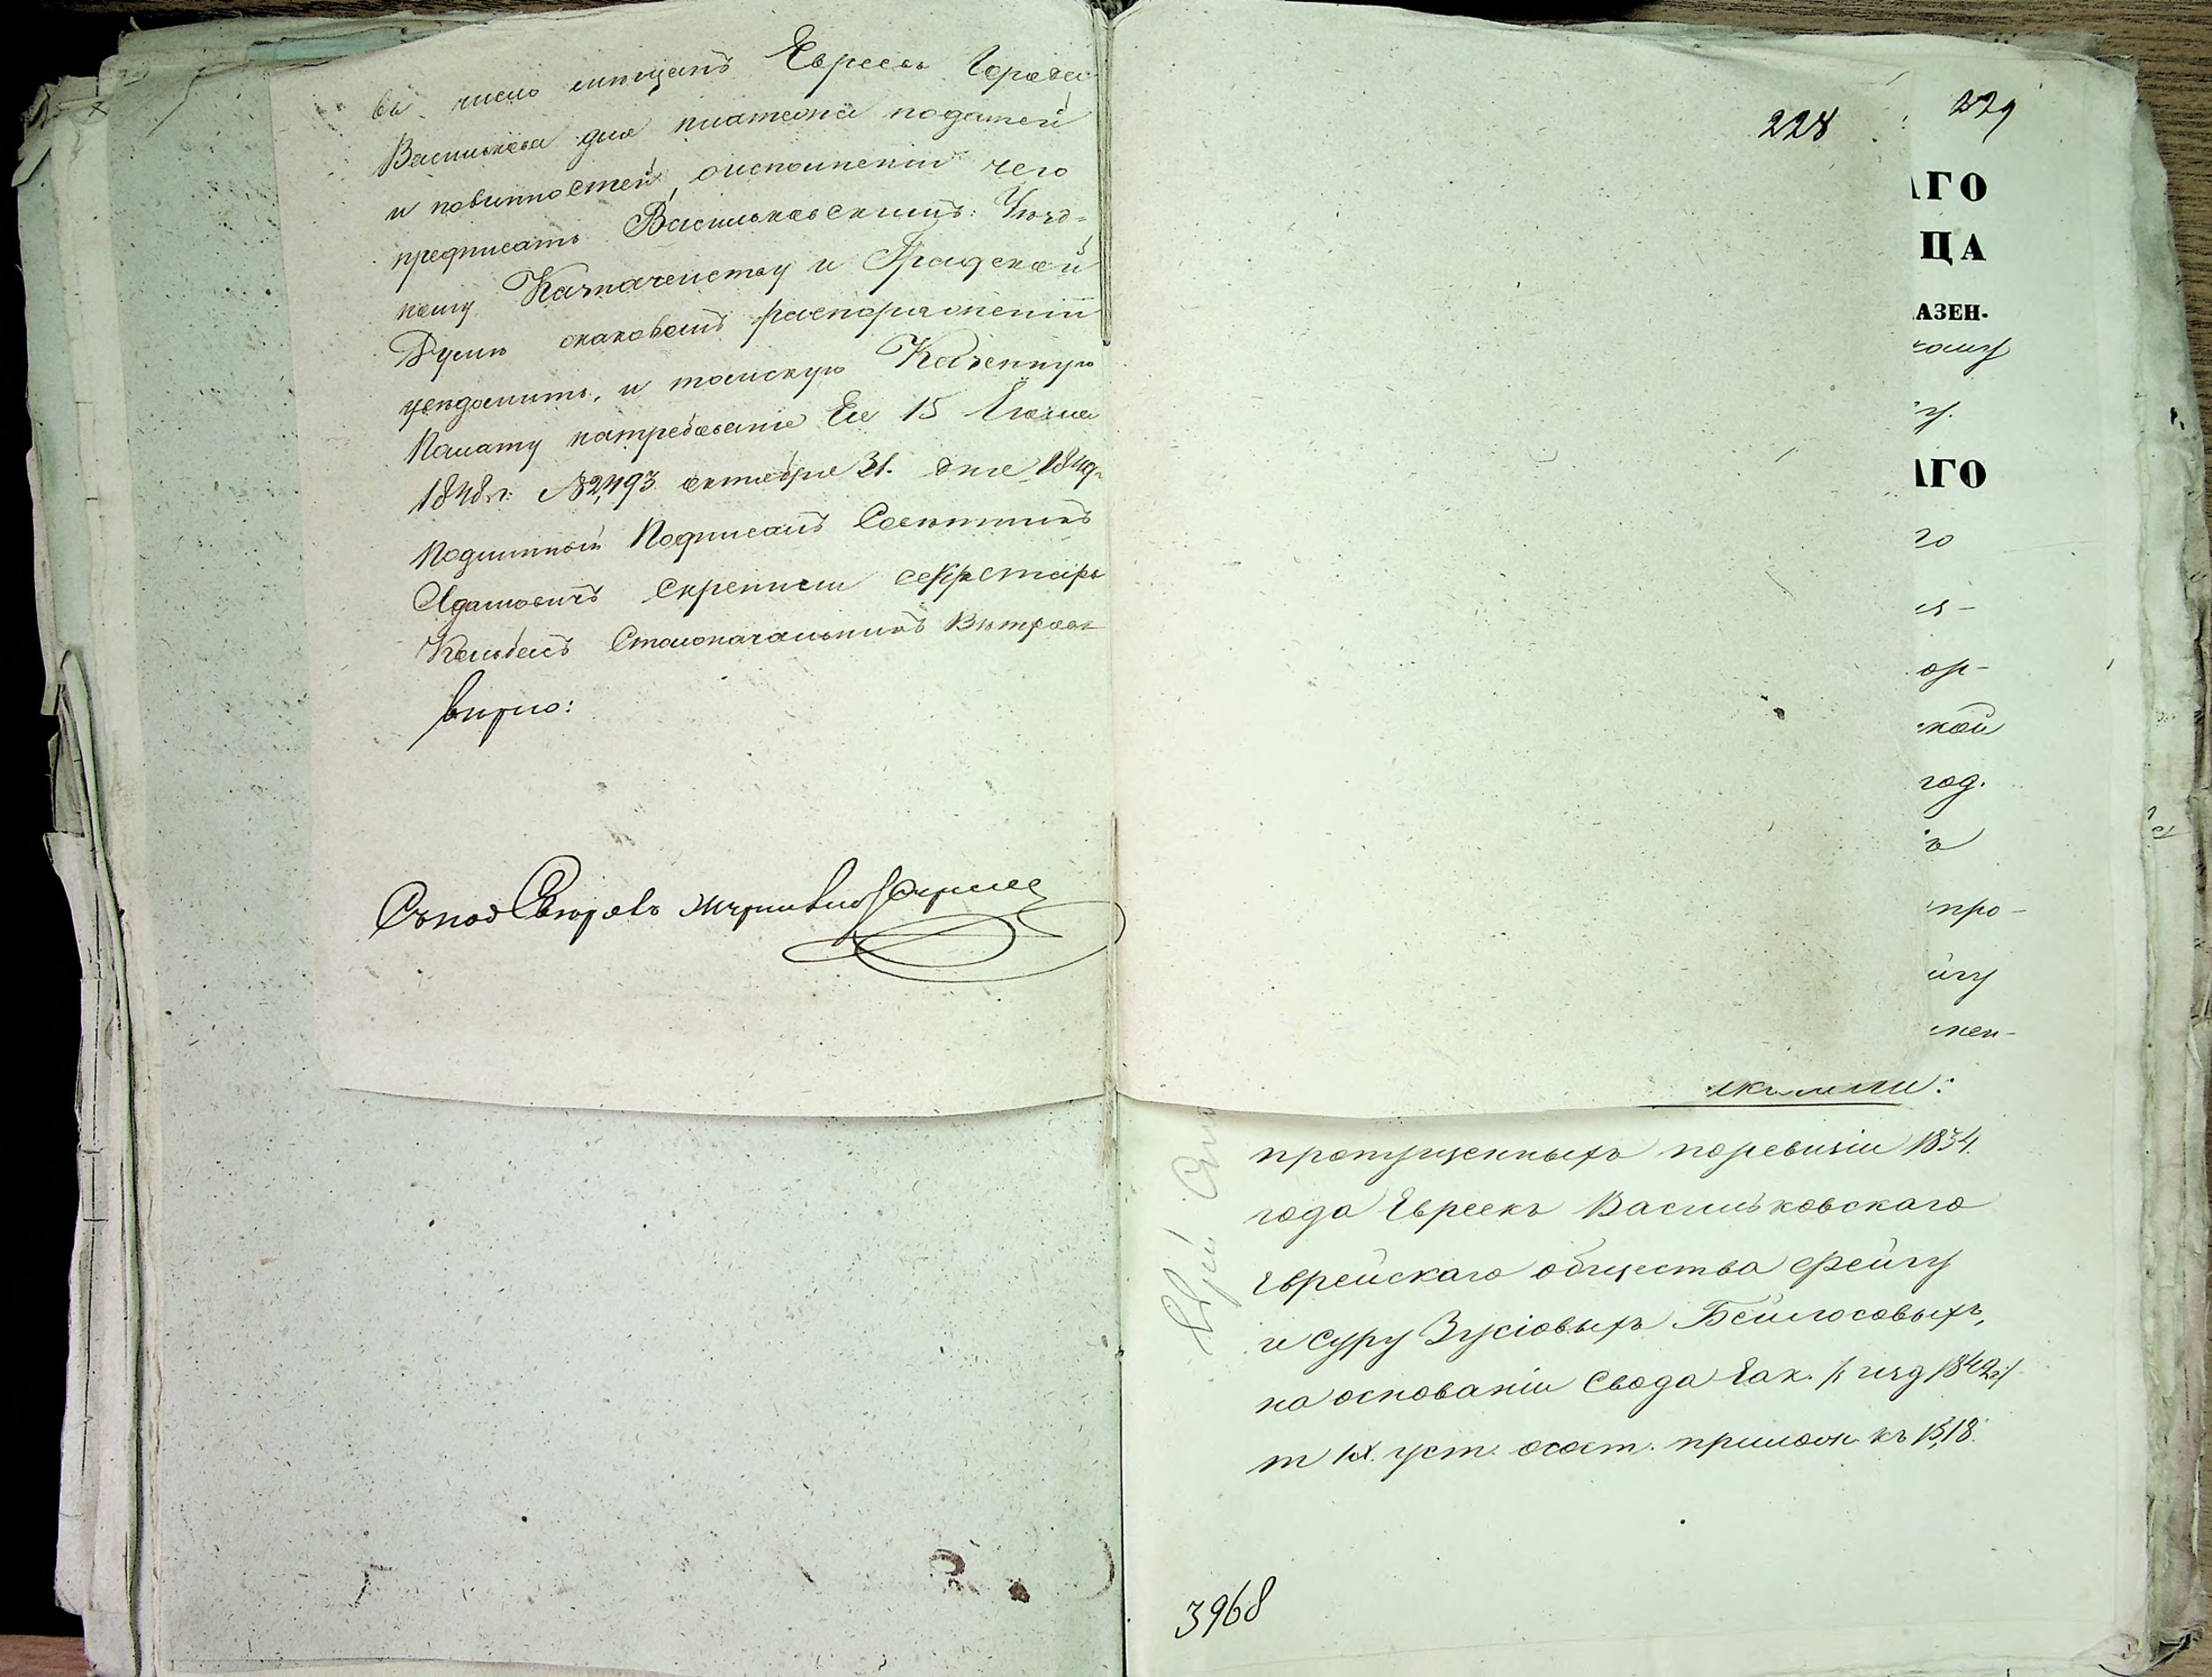 въ число мещанъ Евреевъ города
Василькова для платежа податей
и повинностей, оисполненіи чего
предписать Васильковскимъ: Уезд=
ному Казначейству и Градской
Думе окаковомъ распоряженіи
уведомить, и томскую Казенную
Палату натребованіе Ея 15 Іюля
1848 г: №2,493. октября 31. дня 1849.
Подлинный Подписалъ Советникъ
Адамовичъ Скрепили секретарь
Столоначальникъ
верно:
228
229
АГО
ЦА
АЗЕН-
кому
гу.
АГО
го
ор-
кой
год.
ъ
про-
йгу
мен-
пропущенныхъ поревизіи 1834.
года Евреекъ Васильковскаго
Еврейскаго общества Фейгу
и Суру Зусіовыхъ Бейлосовыхъ,
на основаніи Свода Зак. /: изд 1842 г:/
т IX. уст. осост. прилож къ 1318.
3968